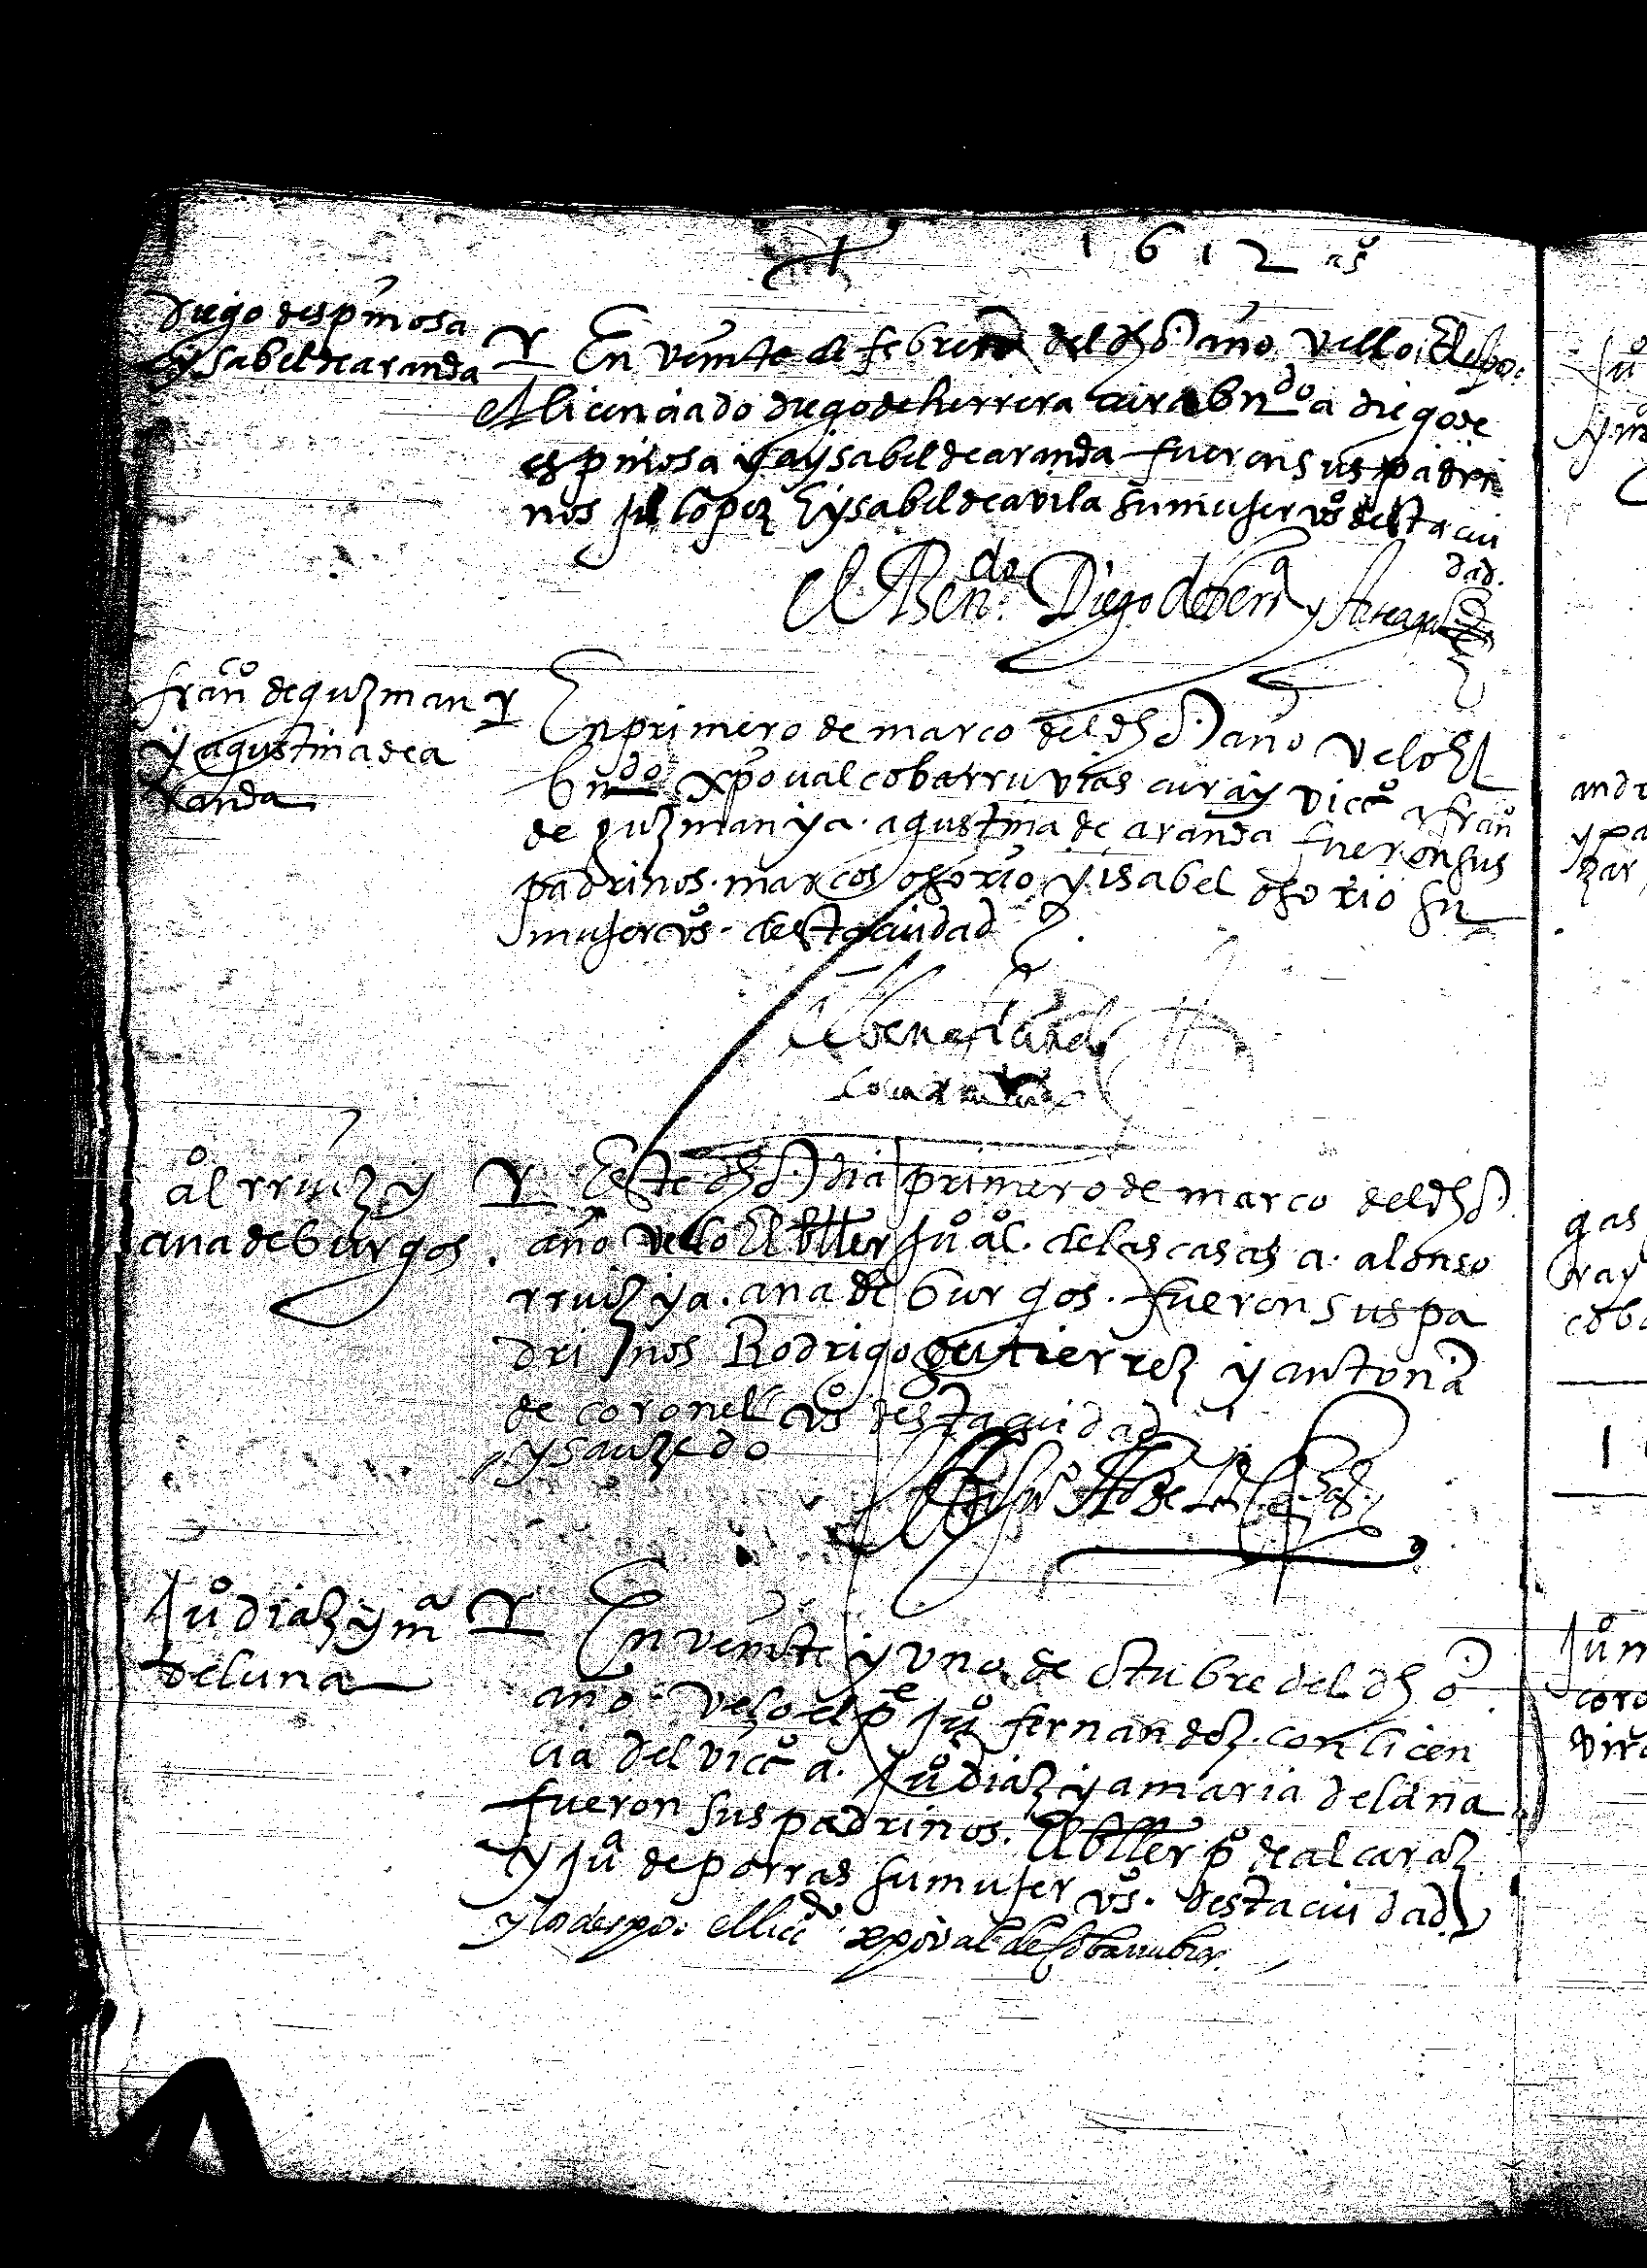 1612 as
diego despinosa
e ysabel de aranda
En veinte de febrero del dho año velo i
el licenciado diego de herrera cura bndo a diego de
espinosa y a ysabel de aranda fueron sus padri
nos lopez e ysabel de avila su mujer vos desta ciu
dad.
El Bendo Diego de herra y
franco de guzman
y agustina de a
randa
En primero de março del dho año velo el
bndo xpoual cobarruvias cura y vicco a franco
de guzman y a agustina de aranda fueron sus
padrinos marcos osorio y isabel osorio su
mujer vos desta ciudad
el beneficiado
alo rruiz y
ana de burgos
Este dho dia primero de março del dho
año velo el bller juo alo de las casas a alonso
rruiz y a ana de burgos fueron sus pa
drinos Rodrigo gutierrez y antonia
de coronel vos desta ciudad
y sauzedo
Juo diaz y ma
de luna
En veinte y uno de otubre del dho
año velo el pe juo fernandez con licen
cia del vicco a juo diaz y a maria de luna
fueron sus padrinos el bller po de alcaraz
y jua de porras su mujer vos desta ciudad
y los despo el licdo xpoval de cobarrubias